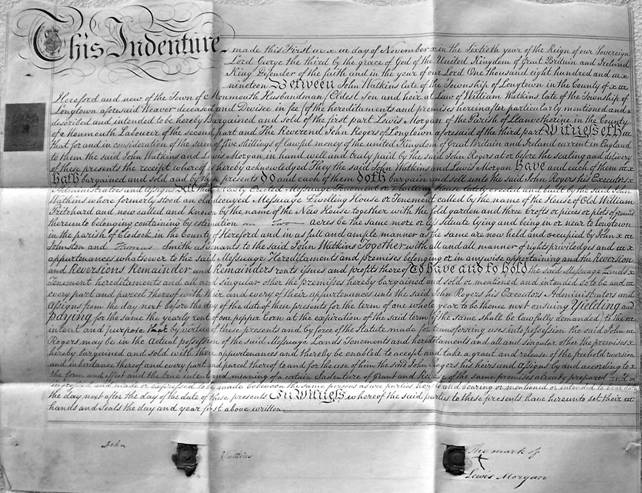 This Indenture made this First day of November in the sixtieth year of the Reign of our Sovereign
Lord George the third by the grace of God of the United Kingdom of Great Britain and Ireland
King Defender of the faith and in the year of our Lord One thousand eight hundred and
nineteen Between John Watkins late of the Township of Longtown in the county of
Hereford and now of the Town of Monmouth Husbandman Eldest Son and heir at Law of William Watkins late of the Township of
Longtown aforesaid Weaver deceased and Devisee in fee of the hereditaments and premises hereinafter particularly mentioned and
described and intended to be hereby Bargained and Sold of the first part Lewis Morgan of the Parish of in the County
of Monmouth Labourer of the second part and The Reverend John Rogers of Longtown aforesaid of the third part Witnesseth
that for and in consideration of the sum of five shillings of lawful money of the united Kingdom of Great Britain and Ireland current in England
to them the said John Watkins and Lewis Morgan in hand well and truly paid by the said John Rogers at or before the sealing and delivery
of these presents the receipt whereof is hereby acknowledged they the said John Watkins and Lewis Morgan Have and each of them
hath bargained and sold and by these presents Do and each of them doth bargain and sell unto the said John Rogers his Executors
Administrators and Assigns All that newly erected Messuage Tenement or lately erected and built by the said John
Watkins where formerly stood an old decayed Messuage Dwelling House or Tenement called by the name of the House of Old William
Pritchard and now called and known by the name of the New House together with the fold garden and three crofts or pieces or plots of
thereunto belonging containing by estimation acres be the same more or less situate lying and being on or near to Longtown
in the parish of Clodock in the County of Hereford and in as full and ample manner as the same are now held and occupied by John
Johnston and Thomas Smith as tenants to the said John Watkins Together with all and all manner of rights priviledges and
appurtenances whatsoever to the said Messuage Hereditaments and premises belonging or in anywise appertaining and the Reversion
and Reversions Remainder and Remainders rents issues and profits thereof To have and to hold the said Messuage Lands
Tenement hereditaments and all and singular other the premises hereby bargained and sold or mentioned and intended so to be and
every part and parcel thereof with their and every of their appurtenances unto the said John Rogers his Executors Administrators and
Assigns from the day next before the day of the date of these presents for the term of one whole year to be thence next ensuing Yielding and
paying for the same the yearly rent of one pepper corn at the expiration of the said term if the same shall be lawfully demanded To the
intent and purpose that by virtue of these presents and by force of the Statute made for transferring uses into possession the said John
Rogers may be in the Actual possession of the said Messuage Lands Tenements and hereditaments and all and singular other the premises
hereby bargained and sold with their appurtenances and thereby be enabled to accept and take a grant and release of the freehold reversion
and inheritance thereof and every part and parcel thereof to and for the use of him the said John Rogers his heirs and Assigns by and according to
the form and effect and the true intent and meaning of a certain Indenture of Grant and Release of the same premises already prepared
ingrossed and made or expressed to be made between the same persons as are parties hereto and bearing or mentioned or intended to bear date
the day next after the day of the date of these presents In Witness whereof the said parties to these presents have hereunto set their
hands and Seals the day and year first above written
John Watkins
The mark of
Lewis Morgan